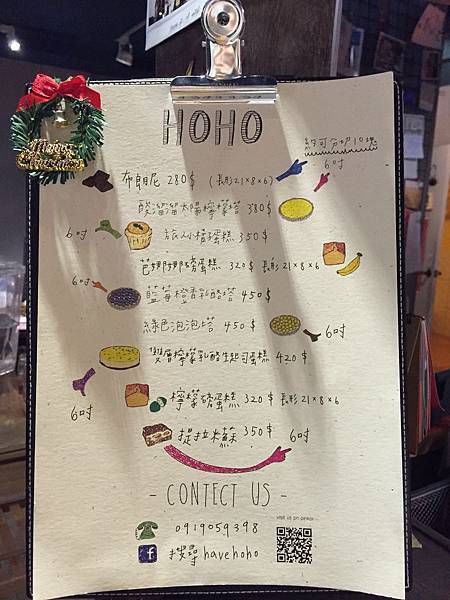 HOHO
約可分切10塊
6吋
布朗尼 280$ (長形21×8×6)
酸溜溜太陽檸檬塔 380$
6吋 旅人小檜蛋糕 350$
芭娜娜磅蛋糕 320$ 長形21×8×6
6吋 藍莓橙香乳酪塔 450$
綠色泡泡塔 450$ 6吋
雙層檸檬乳酪生起司蛋糕 420$
6吋 檸檬磅蛋糕 320$ 長形21×8×6
提拉米蘇 350$ 6吋
- CONTECT US -
0919059398
搜尋 havehoho